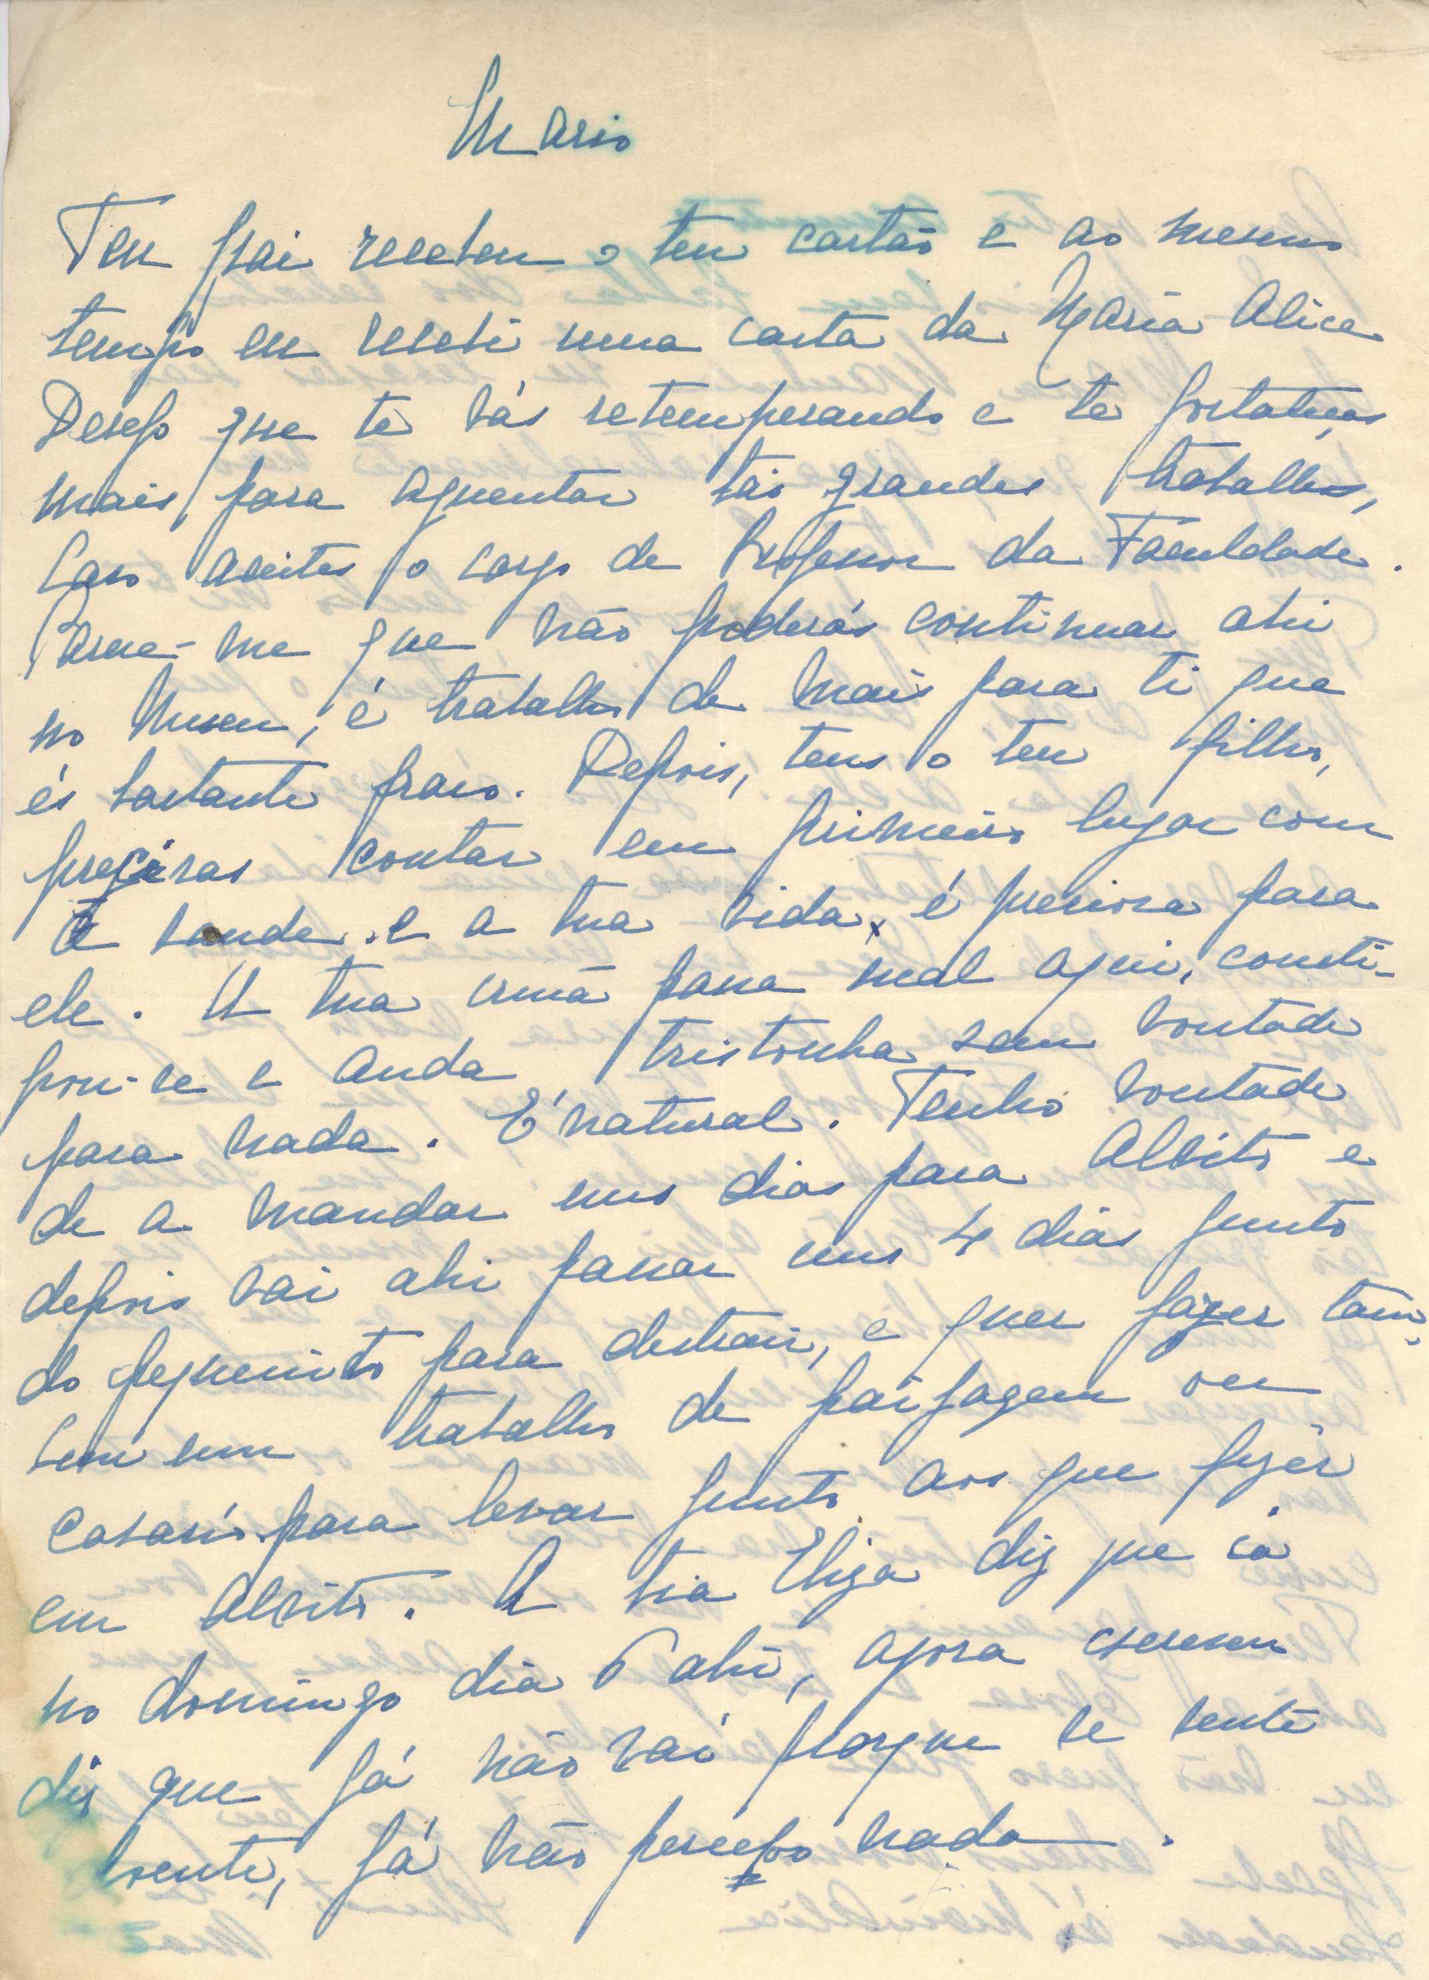 Mario
Teu pai recebeu o teu cartão e ao mesmo
tempo eu recebi uma carta da Maria Alice
Desejo que te vás retemperando e te fortaleças
mais para aguentar tão grandes trabalhos,
caso aceites o cargo de Professor da Faculdade.
Parece-me que não poderás continuar ahi
no Museu, é trabalho de mais para ti que
és bastante fraco. Depois, tens o teu filho,
preçisas contar em primeiro lugar com
a saude e a tua vida, é preciosa para
ele. A tua irmã passa mal aqui, consti-
pou-se e anda tristonha sem vontade
para nada. É natural. Tenho vontade
de a mandar uns dias para Alvito e
depois vai ahi passar uns 4 dias junto
do pequenito para destrair, e quer fazer tam-
bem um trabalho de paijagem ou
casario para levar junto aos que fizér
em Alvito. A tia Eliza diz que ía
no domingo dia 6 ahi, agora escreveu
dis que já não vai porque se sente
doente, já não percebo nada.